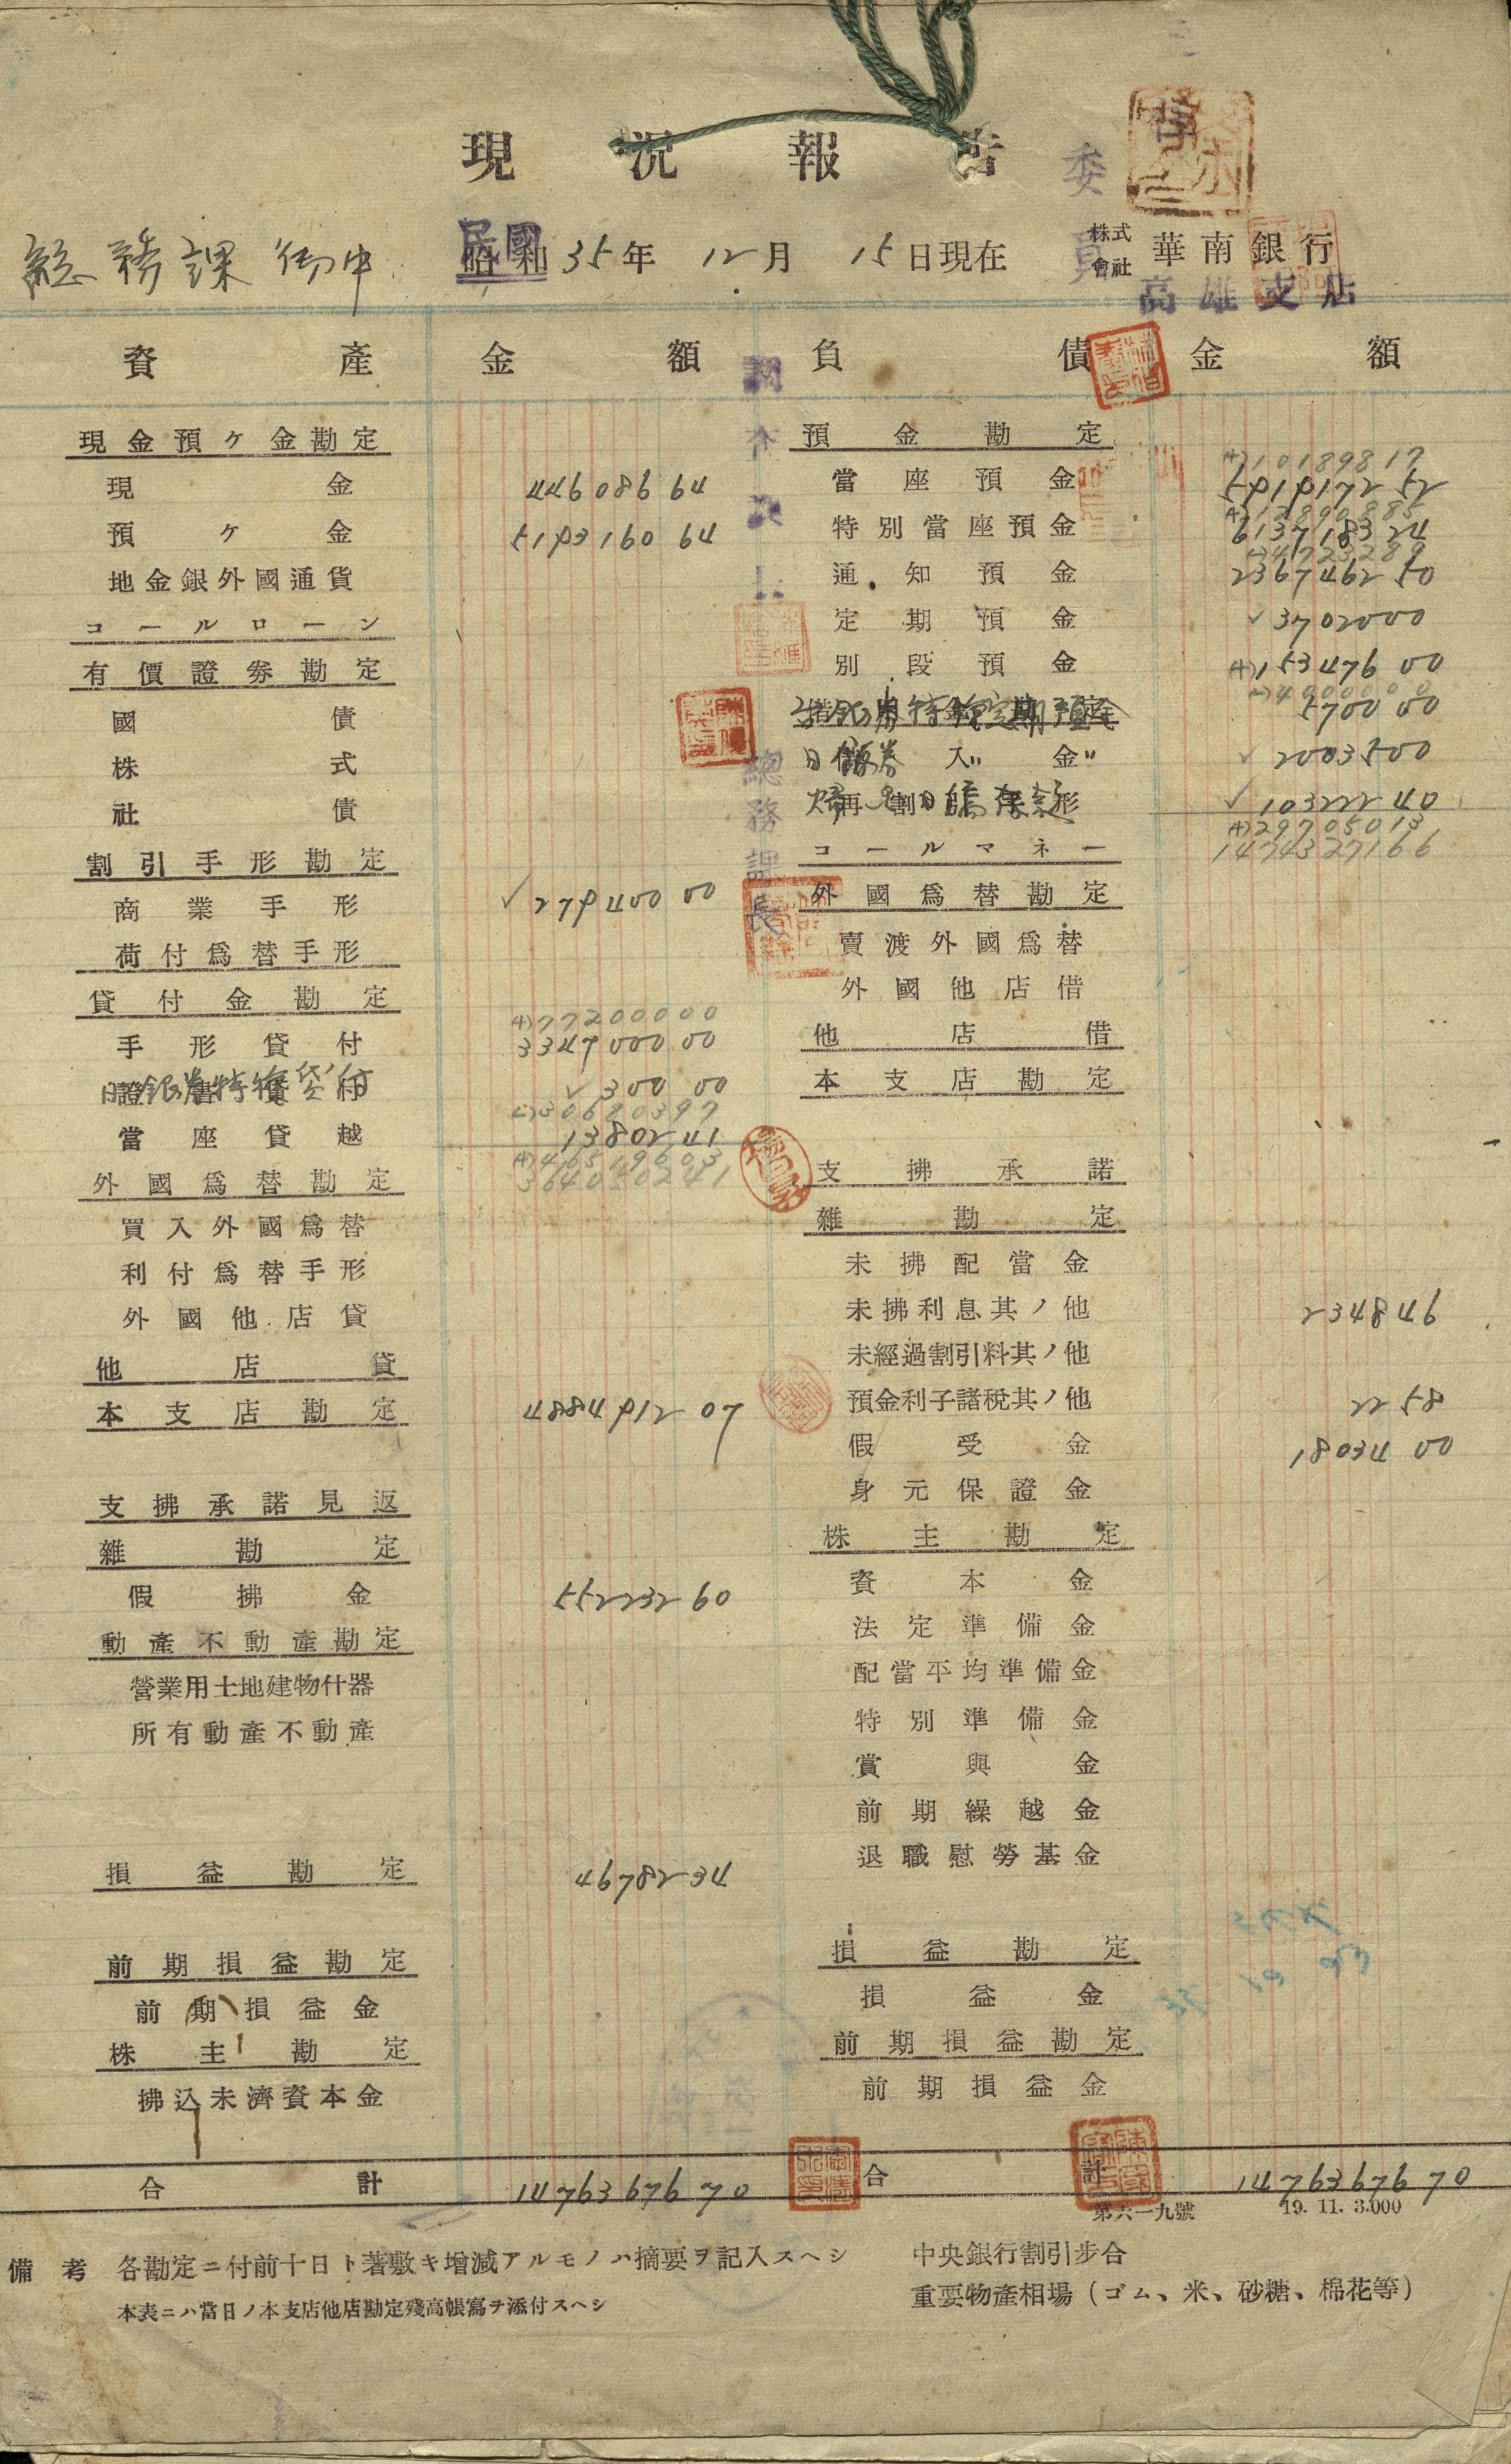 現況報告
總務課御中
民國 昭和35年12月15日現在
株式會社 華南銀行
高雄支店
委員
資產 金額 負債 金額
調査課長
總務課長
現金預ケ金勘定
現金 446086 64
預ケ金 5193160 64
地金銀外國通貨
コールローン
有價證券勘定
國債
株式
社債
割引手形勘定
商業手形 ✓279400 00
荷付爲替手形
貸付金勘定
77200000
手形貸付 3347000 00
證書貸付 ✓300 00
日銀券特種貸付
30620397
當座貸越 13802 41
外國爲替勘定
364050241
買入外國爲替
利付爲替手形
外國他店貸
他店貸
本支店勘定 4884912 07
支拂承諾見返
雜勘定
假拂金 552232 60
動產不動產勘定
營業用土地建物什器
所有動產不動產
損益勘定 46782 34
前期損益勘定
前期損益金
株主勘定
拂込未濟資本金
合計 14763676 70
預金勘定
10189817
當座預金 5919172 52
特別當座預金 6137183 24
通知預金 2367462 50
定期預金 ✓37020 00
別段預金 153476 00
4000000
5700 00
✓20035 00
再割引手形 ✓103222 40
29705013
1474327166
コールマネー
外國爲替勘定
賣渡外國爲替
外國他店借
他店借
本支店勘定
支拂承諾
雜勘定
未拂配當金
未拂利息其ノ他 2348 46
未經過割引料其ノ他
預金利子諸稅其ノ他 22 58
假受金 18034 00
身元保證金
株主勘定
資本金
法定準備金
配當平均準備金
特別準備金
賞與金
前期繰越金
退職慰勞基金
損益勘定
損益金
前期損益勘定
前期損益金
合計 14763676 70
第六一九號 19. 11. 3.000
備考 各勘定ニ付前十日ト著敷キ增減アルモノハ摘要ヲ記入スヘシ
本表ニハ當日ノ本支店他店勘定殘高帳寫ヲ添付スヘシ
中央銀行割引步合
重要物產相場(ゴム、米、砂糖、棉花等)